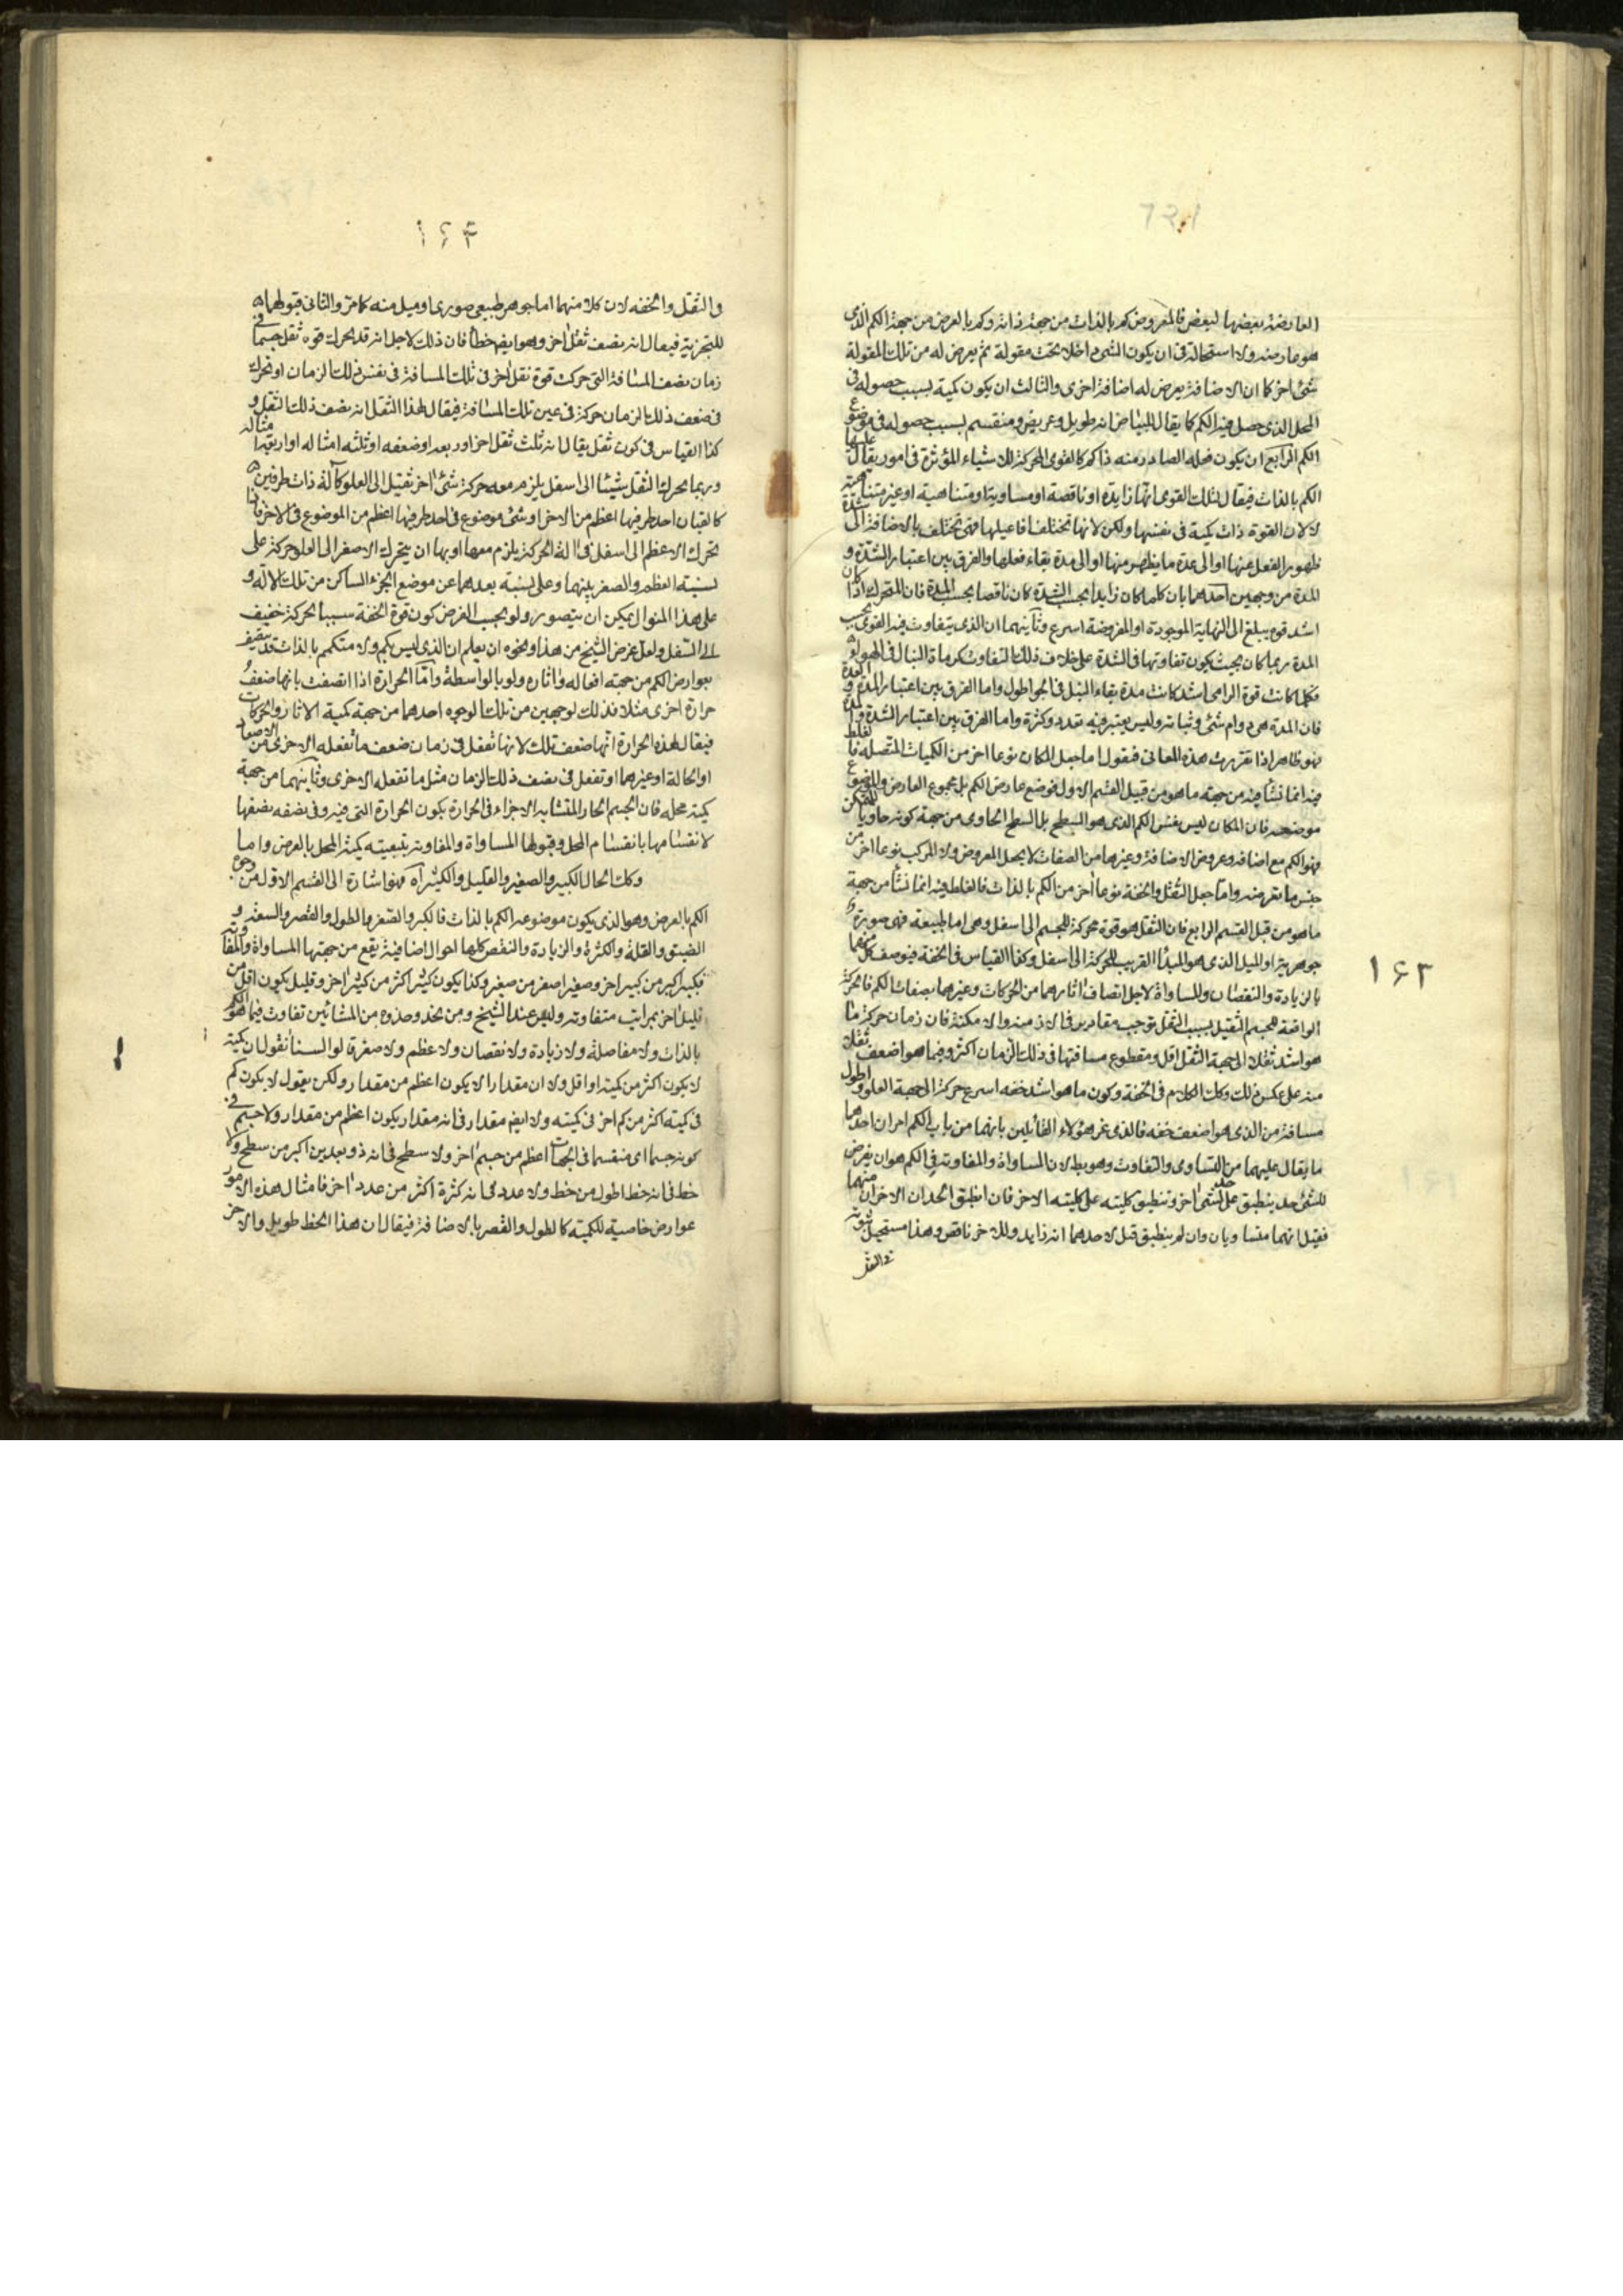 العارضة بعضها لبعض فالمعروض كم بالذات من جهة ذاته وكم بالعرض من جهة الكم الذى
هو عارضه ولا استحالة فى ان يكون الشىء داخلا تحت مقولة ثم يعرض له من تلك المقولة
شىء اخر كما ان الاضافة يعرض له اضافة اخرى والثالث ان يكون كمية بسبب حصوله فى
المحل الذى حصل فيه الكم كما يقال للبياض انه طويل وعريض ومنقسم بسبب حصوله فى موضوع
الكم الرابع ان يكون فعله الصادر منه ذا كم كالقوى المحركة للاشياء المؤثرة فى امور يقال عليها
الكم بالذات فيقال لتلك القوى انها زايدة او ناقصة او مساوية او متناهية او غير متناهية
لا لان القوة ذات كمية فى نفسها ولكن لانها تختلف افاعيلها فهى تختلف بالاضافة الى شدة
ظهور الفعل عنها او الى عدة ما يظهر منها او الى مدة بقاء فعلها والفرق بين اعتبار الشدة و
المدة من وجهين احدهما بان كلما كان زايدا بحسب الشدة كان ناقصا بحسب المدة فان المتحرك اذا كان
اشد قوة يبلغ الى النهاية الموجودة او المفروضة اسرع وثانيهما ان الذى يتفاوت فيه القوى بحسب
المدة ربما كان بحيث يكون تفاوتها فى الشدة على خلاف ذلك التفاوت كرماة النبال فى الهواء
فكلما كانت قوة الرامى اشد كانت مدة بقاء النبل فى الجو اطول واما الفرق بين اعتبار المدة والعدة
فان المدة هى دوام شىء وثباته وليس يعتبر فيه تعدد وكثرة واما الفرق بين اعتبار الشدة والعدة
فهو ظاهر اذا تقررت هذه المعانى فنقول اما جعل المكان نوعا اخر من الكميات المتصله فالغلط
فيه انما نشأ فيه من جهته ما هو من قبيل القسم الاول فوضع عارض الكم بل مجموع العارض والموضوع
موضعه فان المكان ليس نفس الكم الذى هو السطح بل السطح الحاوى من جهة كونه حاويا للمتمكن
فهو الكم مع اضافة وعروض الاضافة وغيرها من الصفات لا يجعل المعروض ولا المركب نوعا اخر من
جنس ما تعرضه واما جعل الثقل والخفة نوعا اخر من الكم بالذات فالغلط فيه انما نشأ من جهة
ما هو من قبل القسم الرابع فان الثقل هو قوة محركة للجسم الى اسفل وهى اما طبيعة فهى صورة
جوهرية او الميل الذى هو المبدأ القريب للحركة الى اسفل وكذا القياس فى الخفة فيوصف كل منهما
بالزيادة والنقصان والمساواة لاجل اتصاف اثارهما من الحركات وغيرهما بصفات الكم فالحركة
الواقعة للجسم الثقيل بسبب الثقل توجب مقادير فى الازمنة والامكنة فان زمان حركة ما
هو اشد ثقلا الى جهة الثقل اقل ومقطوع مسافتها فى ذلك الزمان اكثر وفيما هو اضعف ثقلا
منه على عكس ذلك وكذلك الكلام فى الخفة وكون ما هو اشد خفه اسرع حركة الى جهة العلو واطول
مسافة من الذى هو اضعف خفه فالذى غر هؤلاء القائلين بانهما من باب الكم امران احدهما
ما يقال عليهما من التساوى والتفاوت وهو بط لان المساواة والمفاوته فى الكم هو ان يفرض
للشىء حد ينطبق على حد لشىء اخر وتنطبق كليته على كليته الاخر فان انطبق الحدان الاخران منهما
فقيل انهما متساويان وان لم ينطبق قيل لاحدهما انه زايد وللاخر ناقص وهذا مستحيل ثبوته
فى الثقل
١۶٣
١۶۴
والثقل والخفه لان كلا منهما اما جوهر طبيعى صورى او ميل منه كما مر والثانى قبولهما
للتجزية فيقال انه نصف ثقل اخر وهو ايضا خطأ فان ذلك لاجل انه قد يحرك قوة ثقل جسما فى
زمان نصف المسافة التى حركت قوة ثقل اخر فى تلك المسافة فى نفس ذلك الزمان او يحرك
فى ضعف ذلك الزمان حركة فى عين تلك المسافة فيقال لهذا الثقل انه نصف ذلك الثقل و
كذا القياس فى كون ثقل يقال انه ثلث ثقل اخر او ربعه او ضعفه او ثلثه امثاله او اربعة امثاله
وربما يحرك الثقل شيئا الى اسفل يلزمه معه حركة شىء اخر ثقيل الى العلو كآلة ذات طرفين
كالقبان احد طرفيها اعظم من الاخر او شىء موضوع فى احد طرفيها اعظم من الموضوع فى الاخر فاذا
تحرك الاعظم الى اسفل فى الة الحركة يلزم معها او بها ان يتحرك الاصغر الى العلو حركة على
نسبته العظم والصغر بينهما وعلى نسبته بعدهما عن موضع الجزء الساكن من تلك الآلة و
على هذا المنوال يمكن ان يتصور ولو بحسب الفرض كون قوة الخفة سببا لحركة خفيف
الى السفل ولعل غرض الشيخ من هذا ونحوه ان يعلم ان الذى ليس بكم ولا متكمم بالذات قد يتصف
بعوارض الكم من جهته افعاله واثاره ولو بالواسطة واما الحرارة اذا اتصفت بانها ضعف
حرارة اخرى مثلا فذلك لوجهين من تلك الوجوه احدهما من جهة كمية الاثار والحركات
فيقال لهذه الحرارة انها ضعف تلك لانها تفعل فى زمان ضعف ما تفعله الاخرى من الاصعاد
او الحالة او غيرهما او تفعل فى نصف ذلك الزمان مثل ما تفعله الاخرى وثانيهما من جهة
كمية محله فان الجسم الحار المتشابه الاجزاء فى الحرارة يكون الحرارة التى فيه وفى نصفه نصفها
لانقسامها بانقسام المحل وقبولها المساواة والمفاوته بتبعيته كمية المحل بالعرض واما
وكذلك الحال الكبير والصغير والقليل والكثير اه فهو اشارة الى القسم الاول من وجوه
الكم بالعرض وهو الذى يكون موضوعه الكم بالذات فالكبر والصغر والطول والقصر والسعة و
الضيق والقلة والكثرة والزيادة والنقص كلها احوال اضافية يقع من جهتها المساواة والمفاوته
فكبير اكبر من كبير اخر وصغير اصغر من صغير وكذا يكون كثير اكثر من كثير اخر وقليل يكون اقل من
قليل اخر بمراتب متفاوته وليس عند الشيخ ومن يحذو حذوه من المشائين تفاوت فيما هو الكم
بالذات ولا مفاضلة ولا زيادة ولا نقصان ولا عظم ولا صغر قالوا لسنا نقول ان كمية
لا يكون اكثر من كمية او اقل ولا ان مقدارا لا يكون اعظم من مقدار ولكن نقول لا يكون كم
فى كميته اكثر من كم اخر فى كميته ولا ايضا مقدار فى انه مقدار يكون اعظم من مقدار ولا جسم فى
كونه جسما اى منقسما فى الجهات اعظم من جسم اخر ولا سطح فى انه ذو بعدين اكبر من سطح ولا
خط فى انه خط اطول من خط ولا عدد فى انه كثرة اكثر من عدد اخر فامثال هذه الامور
عوارض خاصية للكمية كالطول والقصر بالاضافة فيقال ان هذا الخط طويل والاخر